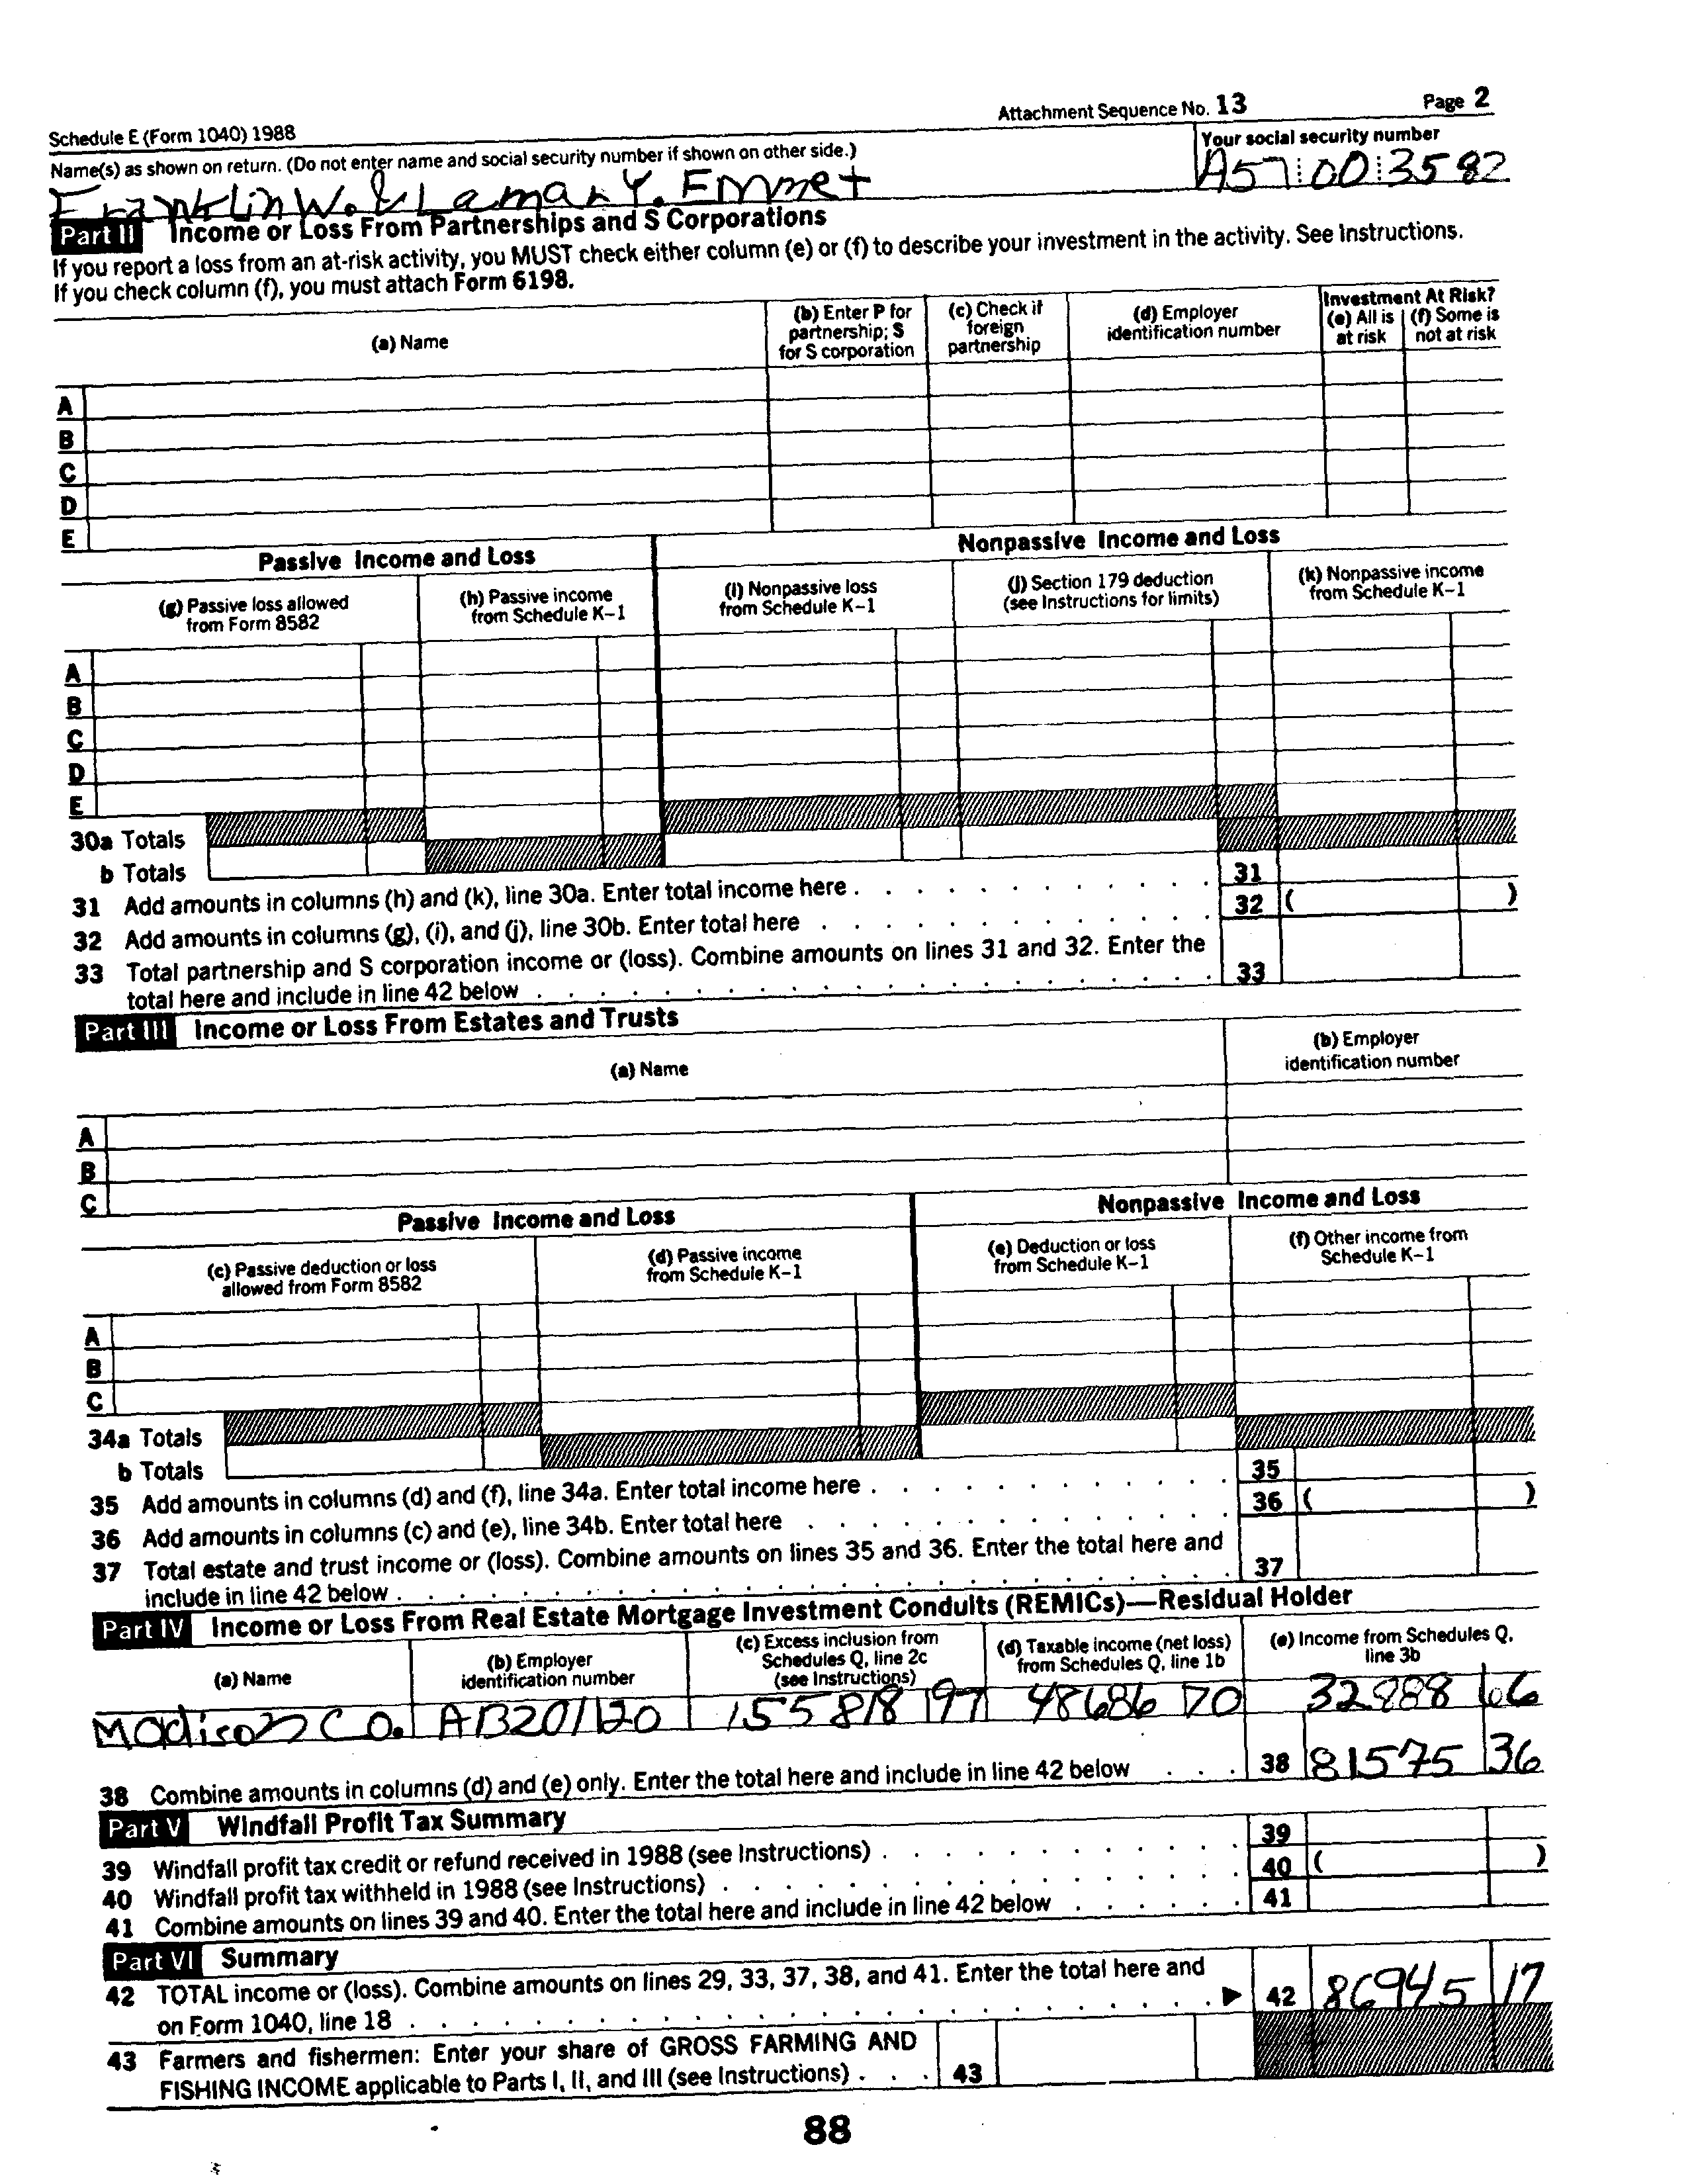 Schedule E (Form 1040) 1988 Attachment Sequence No. 13 Page 2
Name(s) as shown on return. (Do not enter name and social security number if shown on other side.) Your social security number
Franklin W. & Lamar Y. Emmet A57 00 3582
Part II Income or Loss From Partnerships and S Corporations
If you report a loss from an at-risk activity, you MUST check either column (e) or (f) to describe your investment in the activity. See Instructions.
If you check column (f), you must attach Form 6198.
(a) Name
(b) Enter P for partnership; S for S corporation
(c) Check if foreign partnership
(d) Employer identification number
Investment At Risk?
(e) All is at risk
(f) Some is not at risk
A
B
C
D
E
Passive Income and Loss Nonpassive Income and Loss
(g) Passive loss allowed from Form 8582
(h) Passive income from Schedule K-1
(i) Nonpassive loss from Schedule K-1
(j) Section 179 deduction (see Instructions for limits)
(k) Nonpassive income from Schedule K-1
A
B
C
D
E
30a Totals
b Totals
31 Add amounts in columns (h) and (k), line 30a. Enter total income here 31
32 Add amounts in columns (g), (i), and (j), line 30b. Enter total here 32 ( )
33 Total partnership and S corporation income or (loss). Combine amounts on lines 31 and 32. Enter the
total here and include in line 42 below 33
Part III Income or Loss From Estates and Trusts
(a) Name
(b) Employer identification number
A
B
C
Passive Income and Loss Nonpassive Income and Loss
(c) Passive deduction or loss allowed from Form 8582
(d) Passive income from Schedule K-1
(e) Deduction or loss from Schedule K-1
(f) Other income from Schedule K-1
A
B
C
34a Totals
b Totals
35 Add amounts in columns (d) and (f), line 34a. Enter total income here 35
36 Add amounts in columns (c) and (e), line 34b. Enter total here 36 ( )
37 Total estate and trust income or (loss). Combine amounts on lines 35 and 36. Enter the total here and
include in line 42 below 37
Part IV Income or Loss From Real Estate Mortgage Investment Conduits (REMICs)—Residual Holder
(a) Name
(b) Employer identification number
(c) Excess inclusion from Schedules Q, line 2c (see Instructions)
(d) Taxable income (net loss) from Schedules Q, line 1b
(e) Income from Schedules Q, line 3b
Madison Co. AB201120 155818 97 48686 70 32888 66
38 Combine amounts in columns (d) and (e) only. Enter the total here and include in line 42 below 38 81575 36
Part V Windfall Profit Tax Summary
39 Windfall profit tax credit or refund received in 1988 (see Instructions) 39
40 Windfall profit tax withheld in 1988 (see Instructions) 40 ( )
41 Combine amounts on lines 39 and 40. Enter the total here and include in line 42 below 41
Part VI Summary
42 TOTAL income or (loss). Combine amounts on lines 29, 33, 37, 38, and 41. Enter the total here and
on Form 1040, line 18 42 86945 17
43 Farmers and fishermen: Enter your share of GROSS FARMING AND
FISHING INCOME applicable to Parts I, II, and III (see Instructions) 43
88